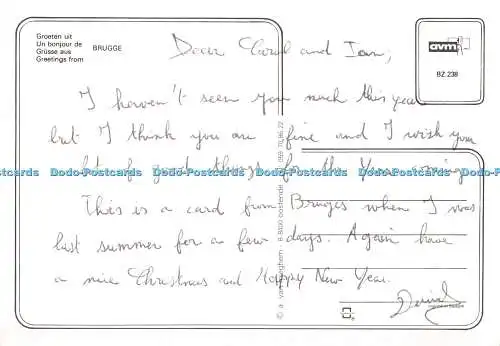 Groeten uit
Un bonjour de
Grüsse aus BRUGGE
Greetings from
avm
BZ.238
Dear Carol and Ian,
I haven't seen you much this year
but I think you are fine and I wish you
lot of good things for the Year coming.
Dodo-Postcards Dodo-Postcards Dodo-Postcards Dodo-Postcards Dodo-Postcards Dodo-Postcards
This is a card from Bruges when I was
last summer for a few days. Again have
a nice Christmas and Happy New Year.